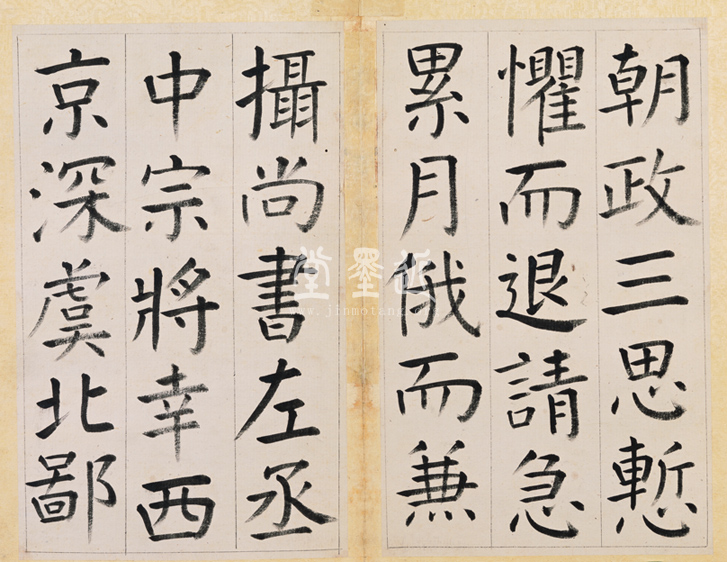 朝政三思慙
懼而退請急
累月俄而兼
攝尚書左丞
中宗將幸西
京深虞北鄙
www.jinmotang.com